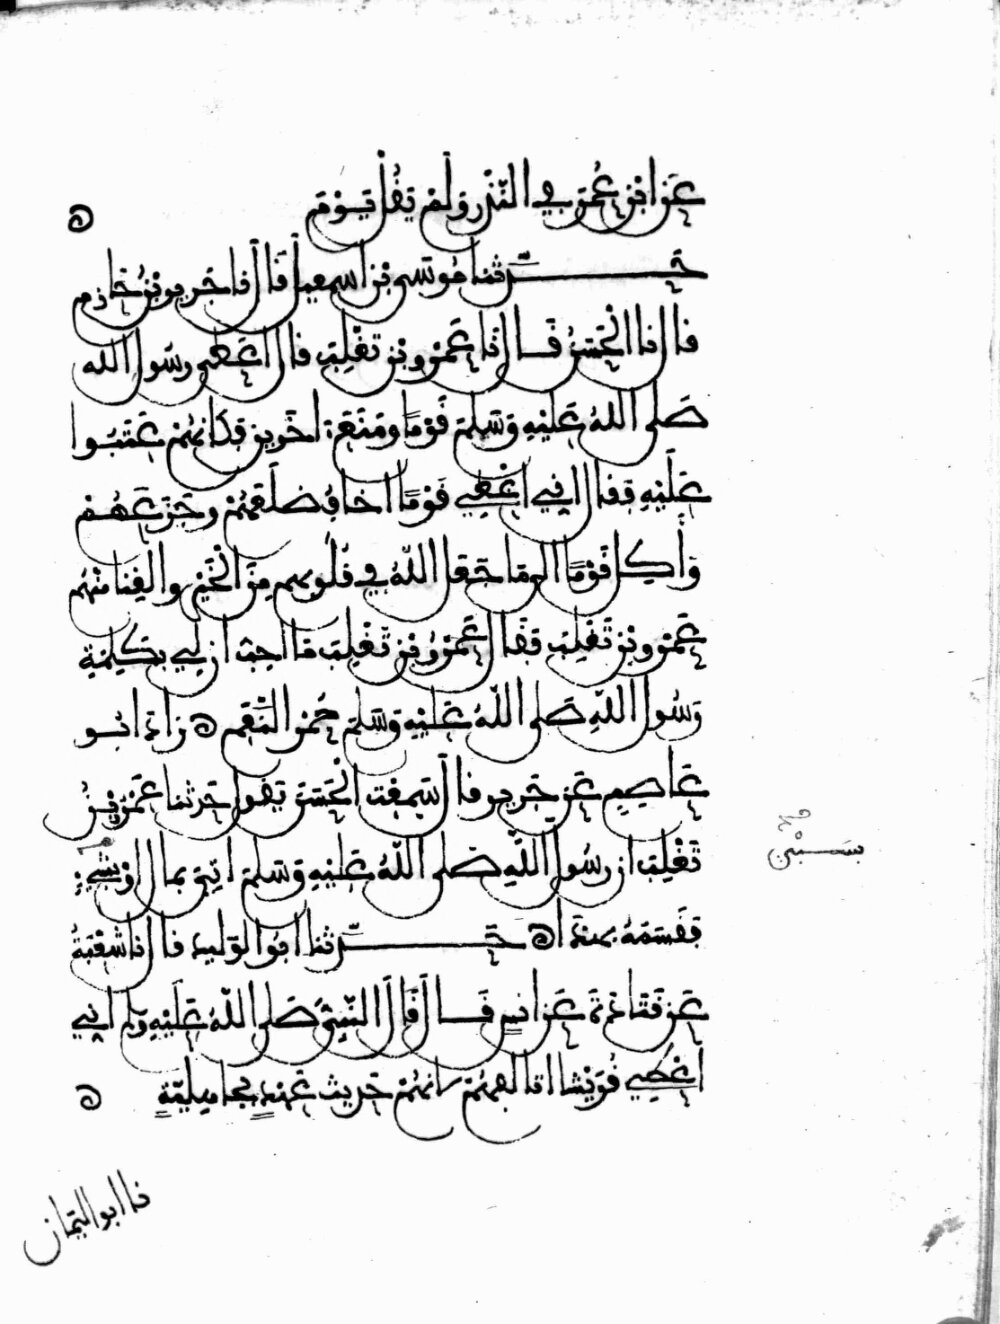 عَنِ ابْنِ عُمَرَ فِي النَّذْرِ وَلَمْ يَقُلْ يَوْمَ ۞
حَدَّثنا مُوسَى بْنُ اسمعيل قَالَ نا جَرِيرُ بْنُ حَازِم
قال نا الْحَسَنُ قَالَ نَا عَمْرُو بْنُ تَغْلِبَ قال اعْطَى رسُول الله
صَلى اللهُ عَلَيْهِ وَسَلمَ قَوْمًا وَمَنَعَ اخَرِينَ فكَانهُمْ عَتَبُوا
عَلَيْهِ فقال اني أُعْطِي قَوْمًا اخافُ ضَلَعَهُمْ وجَزَعَهُمْ
وَأَكِلُ قَوْمًا الى مَا جَعَلَ اللهُ فِي قُلُوبِهِم مِنَ الْخَيْرِ والغِنا مِنْهُم
عَمْرُو بْنُ تَغْلِبَ فقَال عَمْرُو بْنُ تَغْلِبَ مَا احِبُّ ان لِي بكَلِمَةِ
رَسُول اللهِ صَلى اللهُ عَلَيْهِ وَسَلمَ حُمْرَ النَّعَمِ ۞ زادَ ابُو
عَاصِمٍ عَن جَرِيرٍ قال سَمِعْتُ الْحَسَنَ يَقول حَدثنا عَمْرُو بْنُ
تَغْلِبَ ان رسُول اللهِ صَلى اللهُ عَلَيْهِ وَسَلم اتِيَ بمال اوْ بشَيْءٍ
بسَبْيٍ
فقَسَمَهُ بهذا ۞ حَدَّثنا ابُو الوَليد قال نا شُعْبَةُ
عَن قَتَادَةَ عَن انسٍ قَال قَالَ النَّبِيُّ صَلى اللهُ عَلَيْهِ وسلم اني
أُعْطِي قُرَيْشا اتالفهُمْ لانهُمْ حَدِيثُ عَهْدٍ بجاهِلِيَّةٍ ۞
نا ابو اليمان